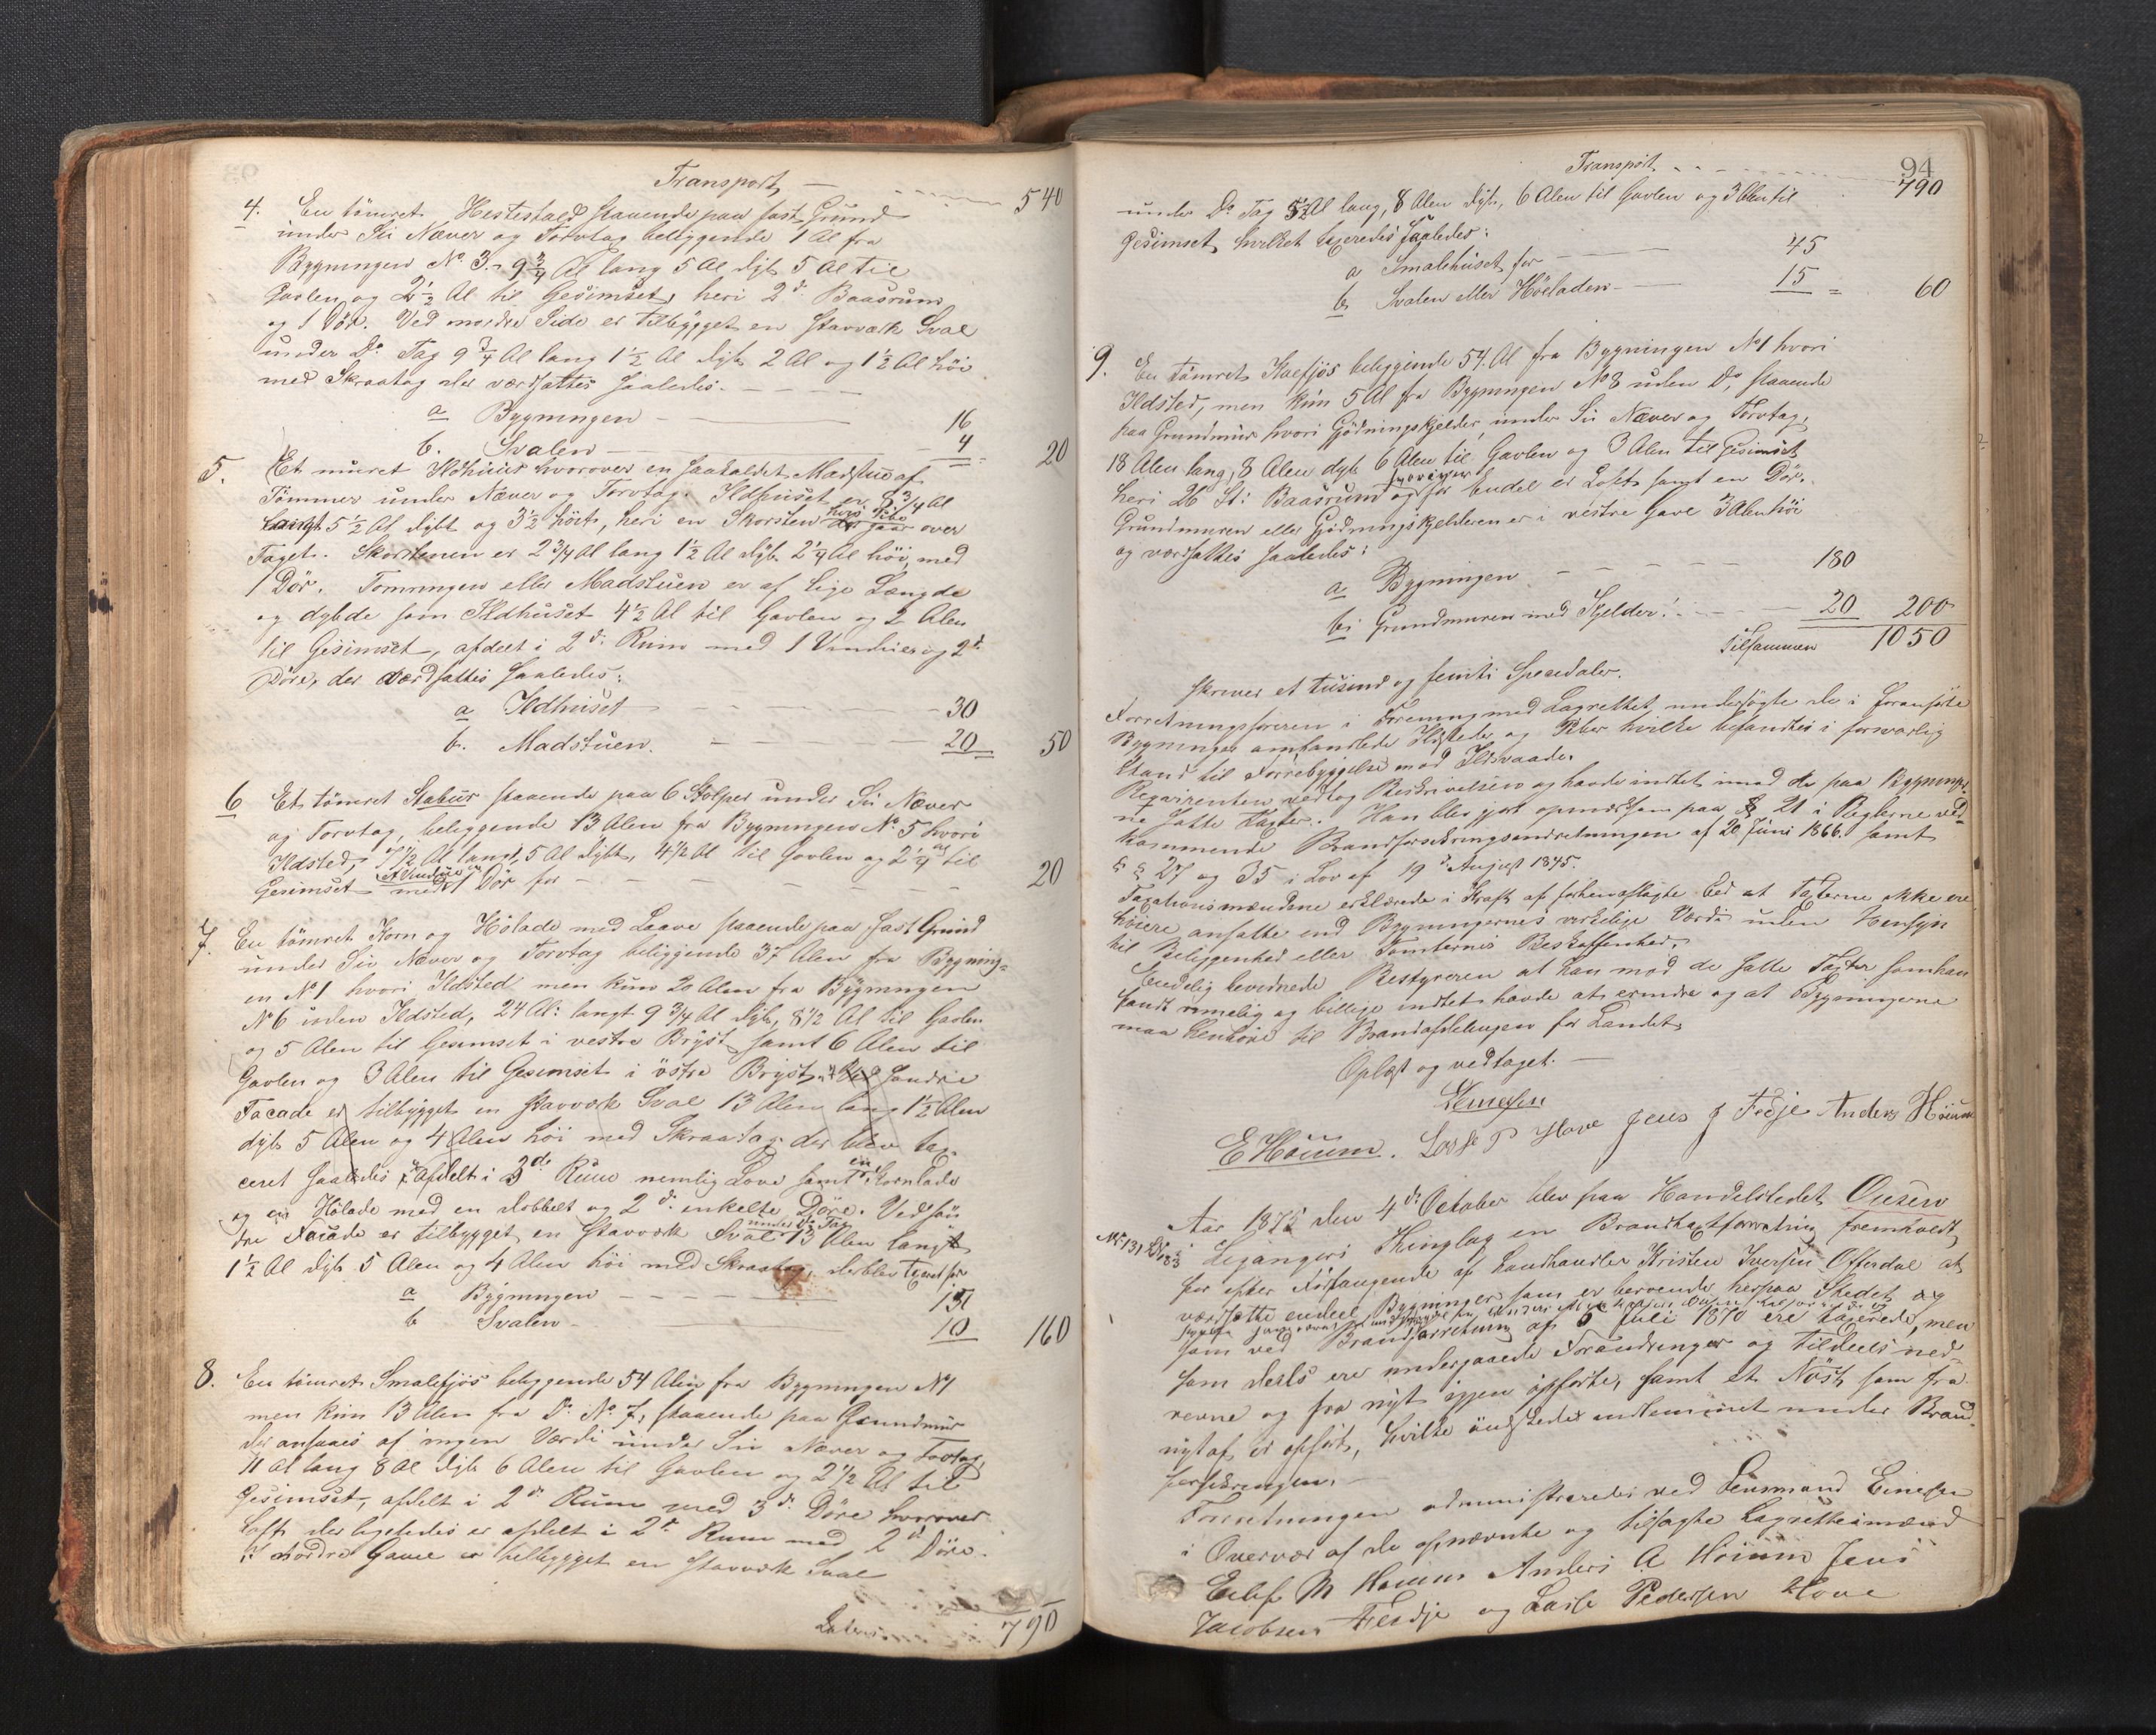 Transport — 540
4. En tömret Hestestald staaende paa fast Grund
under Su Næver og Torvtag beliggende 1 Al fra
Bygningen No 3. 9 3/4 Al lang 5 Al dyb 5 Al til
Gavlen og 2 1/2 Al til Gesimset, heri 2de Baasrum
og 1 Dör. Ved nordre Side er tilbygget en Stavværk Sval
under Do Tag 9 3/4 Al lang 1 1/2 Al dyb 2 Al og 1 1/2 Al höi
med Skraatag der værdsattes saaledes.
a Bygningen — 16
b. Svalen — 4 = 20
5. Et muret Ildhuus hvorover en saakaldet Madstue af
Tömmer under Næver og Torvtag. Ildhuset er 8 3/4 Al
langt 5 1/2 Al dybt og 3 1/2 höit, heri en Skorsten hvis Pibe gaar over
Taget. Skorstenen er 2 3/4 Al lang 1 1/2 Al dyb 2 1/4 Al höi, med
1 Dör. Tömringen eller Madstuen er af lige Længde
og dybde som Ildhuset 4 1/2 Al til Gavlen og 2 Alen
til Gesimset, afdeelt i 2de Rum med 1 Vindue og 2de
Döre, der værdsattes saaledes:
a Ildhuset — 30
b. Madstuen. — 20 50
6 Et tömret Stabur staaende paa 6 Stolper under Su Næver
og Torvtag, beliggende 13 Alen fra Bygningen No 5 hvori
Ildsted, 7 1/2 Al langt, 5 Al dybt, 4 1/2 Al til Gavlen og 2 1/4 Al til
Gesimset med 1 Dör for — 20
7. En tömret Korn og Hölade med Laave staaende paa fast Grund
under Su Næver og Torvtag beliggende 37 Alen fra Bygning-
en No 1 hvori Ildsted men kun 20 Alen fra Bygningen
No 6 uden Ildsted, 24 Al: langt 9 3/4 Al dyb, 8 1/2 Al til Gavlen
og 5 Alen til Gesimset i vestre Bryst samt 6 Alen til
Gavlen og 3 Alen til Gesimset i östre Bryst, Ved söndre
Facade er tilbygget en Stavværk Sval 13 Alen lang 1 1/2 Alen
dyb 5 Alen og 4 Alen höi med Skraatag der blev tax-
ceret saaledes: afdelt i 3de Rum nemlig Love samt en Kornlade
og en Hölade med en dobbelt og 2de enkelte Döre. Ved sön
dre Facade er tilbygget en Stavværk Sval under do Tag 13 Alen langt
1 1/2 Al dyb 5 Alen og 4 Alen höi med Skraatag, der blev taxeret for
a Bygningen — 150
b Svalen — 10 160
8. En tömret Smalefjös beliggende 54 Alen fra Bygningen No 1
men kun 13 Alen fra Do No 7, staaende paa Grundmuur
der ansaaes af ingen Værdi under Su Næver og Torvtag,
11 Al lang 8 Al dyb 6 Alen til Gavlen og 2 1/2 Al til
Gesimset, afdelt i 2de Rum med 3de Döre hvorover
Loft der ligeledes er afdelt i 2de Rum med 2de Döre.
I nordre Gavel er tilbygget en Stavværk Sval
Lateris 790
94
Transport — 790
under Do Tag 5 1/2 Al lang, 8 Alen dyb, 6 Alen til Gavlen og 3 Alen til
Gesimset, hvilket taxeredes saaledes:
a Smalehuset for — 45
b Svalen eller Höeladen — 15 = 60
9. En tömret Kuefjös beliggende 54 Al fra Bygningen No 1 hvori
Ildsted, men kun 5 Al fra Bygningen No 8 uden Do, staaende
paa Grundmuur hvori Gjödningskjelder under Su Næver og Torvtag,
18 Alen lang, 8 Alen dyb 6 Alen til Gavlen og 3 Alen til Gesimset
heri 26 St: Baasrum og for Endel er Loft samt en Dör.
Grundmuren eller Gjödningskjelderen er i vestre Gavl 3 Alen höi
og værdsattes saaledes:
a Bygningen — 180
b: Grundmuren med Kjelder — 20 200
Tilsammen 1050
skriver et tusend og femti Speciedaler.
Forretningsföreren i Forening med Lagrettet undersögte de i foranförte
Bygninger omhandlede Ildsteder og Piber hvilke befandtes i forsvarlig
Stand til Forrebyggelse mod Ildsvaade.
Reqvirenten vedtog Beskrivelsen og havde intet imod de paa Bygninger-
ne satte Taxter. Han blev gjort opmærksom paa § 21 i Reglerne ved-
kommende Brandforsikringsindretningen af 20 Juni 1866 samt
§ § 27 og 35 i Lov af 19de August 1845.
Taxationsmændene erklærede i Kraft af forhen aflagte Eed at Taxterne ikke ere
höiere ansatte end Bygningernes virkelige Værdi uden Hensyn
til Beliggenhed eller Tomternes Beskaffenhed.
Endelig bevidnede Bestyreren at han mod de satte Taxter som han
fandt rimelig og billige indtet havde at erindre og at Bygningerne
maa henhöre til Brandafdelingen for Landet.
Oplæst og vedtaget. —
Einesen
E Höium. Lasse P Hove Jens J Fedje Anders Höium
Aar 1875 den 4de October blev paa Handelstedet Ousen
No 131 Leganger Thinglag en Brandtaxtforretning fremholdt,
for efter Forlangende af Landhandler Kristen Iversen Offerdal at
værdsætte endeel Bygninger som er beroende herpaa Stedet og
som ved Brandforretning af 6 Juli 1870 ere taxerede, men
som deels ere undergaaede Forandringer og tildeels ned-
revne og fra nyt igjen opförte, samt et Nöst som fra
nyt af er opfört, hvilke önskedes indlemmet under Brand-
forsikringen. —
Forretningen administreredes ved Lensmand Einesen
i Overvær af de opnævnte og tilsagte Lagrettesmænd
Eilif M Höium Anders A Höium Jens
Jacobsen Fedje og Lasse Pedersen Hove